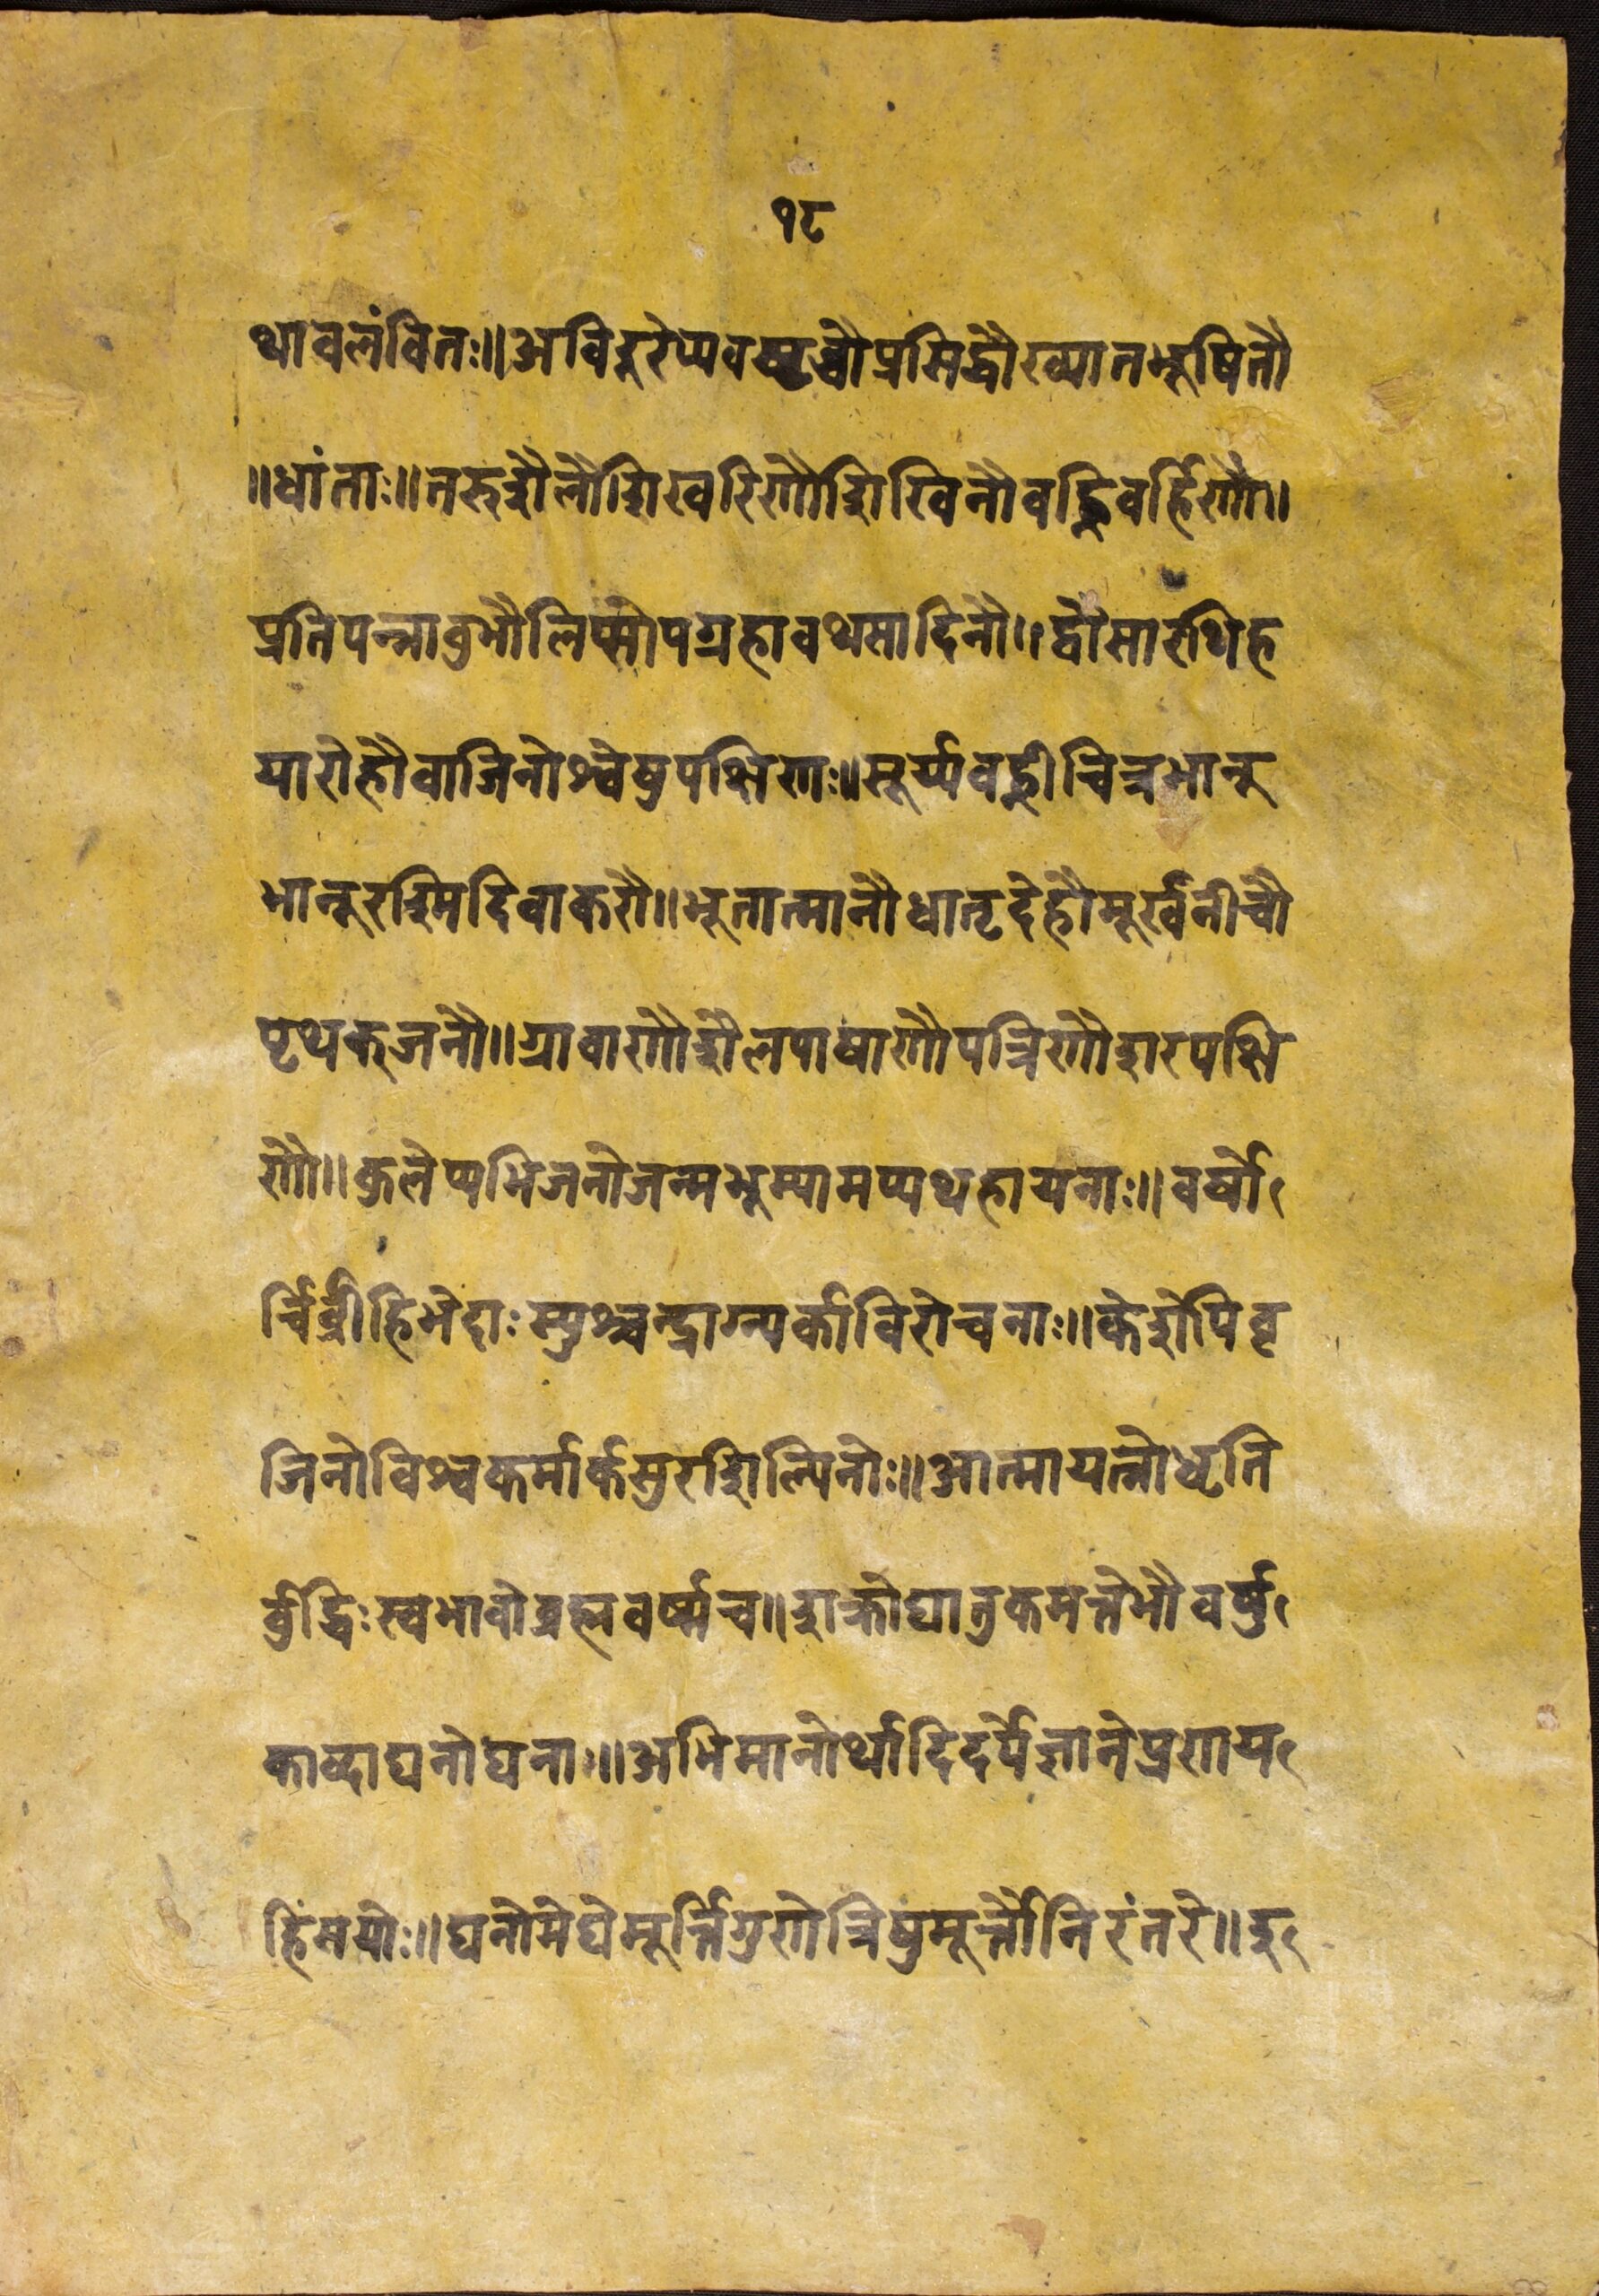 १८
थावलंवितः॥अविदूरेप्यवष्टब्धौप्रसिद्धौख्यातभूषितौ
॥धांताः॥तरुशैलौशिखरिणौशिखिनौवह्निवर्हिणौ।
प्रतिपन्नावुभौलिप्सोपग्रहावथसादिनौ॥द्वौसारथिह
यारोहौवाजिनोश्वेषुपक्षिणः॥सूर्य्यवह्नीचित्रभानू
भानूरश्मिदिवाकरौ॥भूतात्मानौधातृदेहौमूर्खनीचौ
पृथक्जनौ॥ग्रावाणौशैलपाषाणौपत्रिणौशरपक्षि
णौ॥कुलेप्यभिजनोजन्मभूम्यामप्यथहायनाः॥वर्षा
र्चिर्व्रीहिभेदाःस्युश्चन्द्राग्न्यर्काविरोचनाः॥केशेपिवृ
जिनोविश्वकर्मार्कसुरशिल्पिनोः॥आत्मायत्नोधृति
र्वुद्धिःस्वभावोव्रह्मवर्ष्मच॥शक्रोघातुकमत्तेभौवर्षु
काव्दाघनोघनाः॥अभिमानोर्थादिदर्पेज्ञानेप्रणाय
हिंमयोः॥घनोमेघेमूर्त्तिगुणेत्रिषुमूर्त्तौनिरंतरे॥इ